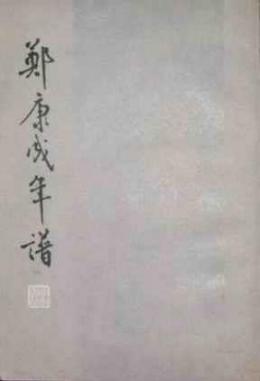 鄭康成年譜